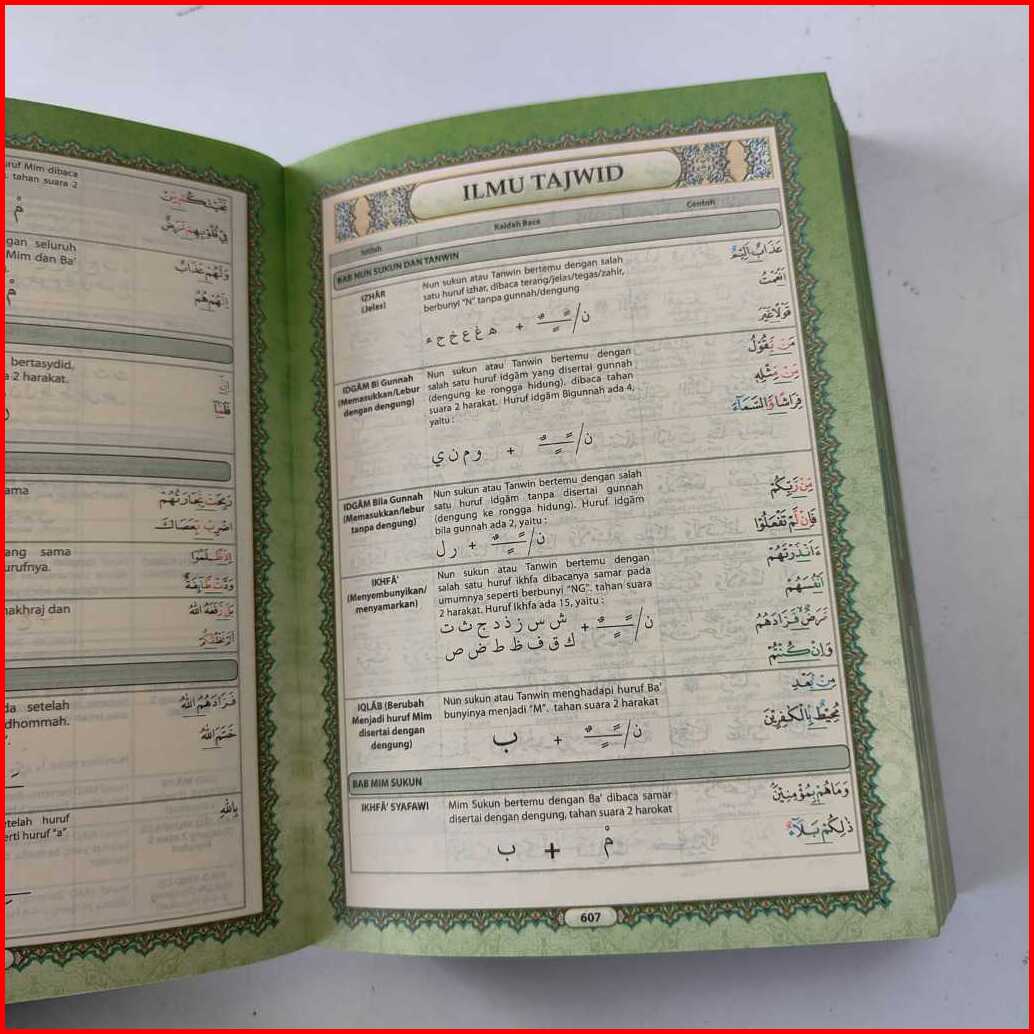 uruf Mim dibaca
tahan suara 2
مْ
فِي قُلُوْبِهِمْ مَرَضٌ
gan seluruh
Mim dan Ba'
مْ
وَلَهُمْ عَذَابٌ
اِنَّهُمْ هُمْ
bertasydid,
2 harakat.
اِنَّ
ama
رَبِحَتْ تِجَارَتُهُمْ
اضْرِبْ بِعَصَاكَ
ang sama
urufnya.
اِذْ ظَلَمُوْا
وَدَّتْ طَّآئِفَةٌ
nakhraj dan
بَلْ رَفَعَهُ اللهُ
da setelah
dhommah.
فَزَادَهُمُ اللهُ
خَتَمَ اللهُ
etelah huruf
erti huruf "a"
بِاللهِ
ILMU TAJWID
Istilah
Kaidah Baca
Contoh
BAB NUN SUKUN DAN TANWIN
IZHÂR
(Jelas)
Nun sukun atau Tanwin bertemu dengan salah
satu huruf izhar, dibaca terang/jelas/tegas/zahir,
berbunyi "N" tanpa gunnah/dengung
ه غ ع خ ح ء + ـًـٍـٌ / ن
عَذَابٌ اَلِيْمٌ
اَنْعَمْتَ
قَوْلًا غَيْرَ
IDGÂM Bi Gunnah
(Memasukkan/Lebur
dengan dengung)
Nun sukun atau Tanwin bertemu dengan
salah satu huruf idgâm yang disertai gunnah
(dengung ke rongga hidung). dibaca tahan
suara 2 harakat. Huruf idgâm Bigunnah ada 4,
yaitu :
و م ن ي + ـًـٍـٌ / ن
مَنْ يَقُوْلُ
مِنْ مِثْلِهِ
فِرَاشًا وَالسَّمَآءَ
IDGÂM Bila Gunnah
(Memasukkan/lebur
tanpa dengung)
Nun sukun atau Tanwin bertemu dengan salah
satu huruf idgâm tanpa disertai gunnah
(dengung ke rongga hidung). Huruf idgâm
bila gunnah ada 2, yaitu :
ر ل + ـًـٍـٌ / ن
مِنْ رَبِّكُمْ
فَاِنْ لَمْ تَفْعَلُوْا
IKHFÂ'
(Menyembunyikan/
menyamarkan)
Nun sukun atau Tanwin bertemu dengan
salah satu huruf ikhfa dibacanya samar pada
umumnya seperti berbunyi "NG". tahan suara
2 harakat. Huruf Ikhfa ada 15, yaitu :
ش س ز ذ د ج ث ت + ـًـٍـٌ / ن
ك ق ف ظ ط ض ص
ءَاَنْذَرْتَهُمْ
اَنْفُسَهُمْ
مَرَضٌ فَزَادَهُمُ
وَاِنْ كُنْتُمْ
IQLÂB (Berubah
Menjadi huruf Mim
disertai dengan
dengung)
Nun sukun atau Tanwin menghadapi huruf Ba'
bunyinya menjadi "M". tahan suara 2 harakat
ب + ـًـٍـٌ / ن
مِنْ بَعْدِ
مُحِيْطٌ بِالْكٰفِرِيْنَ
BAB MIM SUKUN
IKHFÂ' SYAFAWI
Mim Sukun bertemu dengan Ba' dibaca samar
disertai dengan dengung, tahan suara 2 harokat
ب + مْ
وَمَاهُمْ بِمُؤْمِنِيْنَ
ذٰلِكُمْ بَلَآءٌ
607